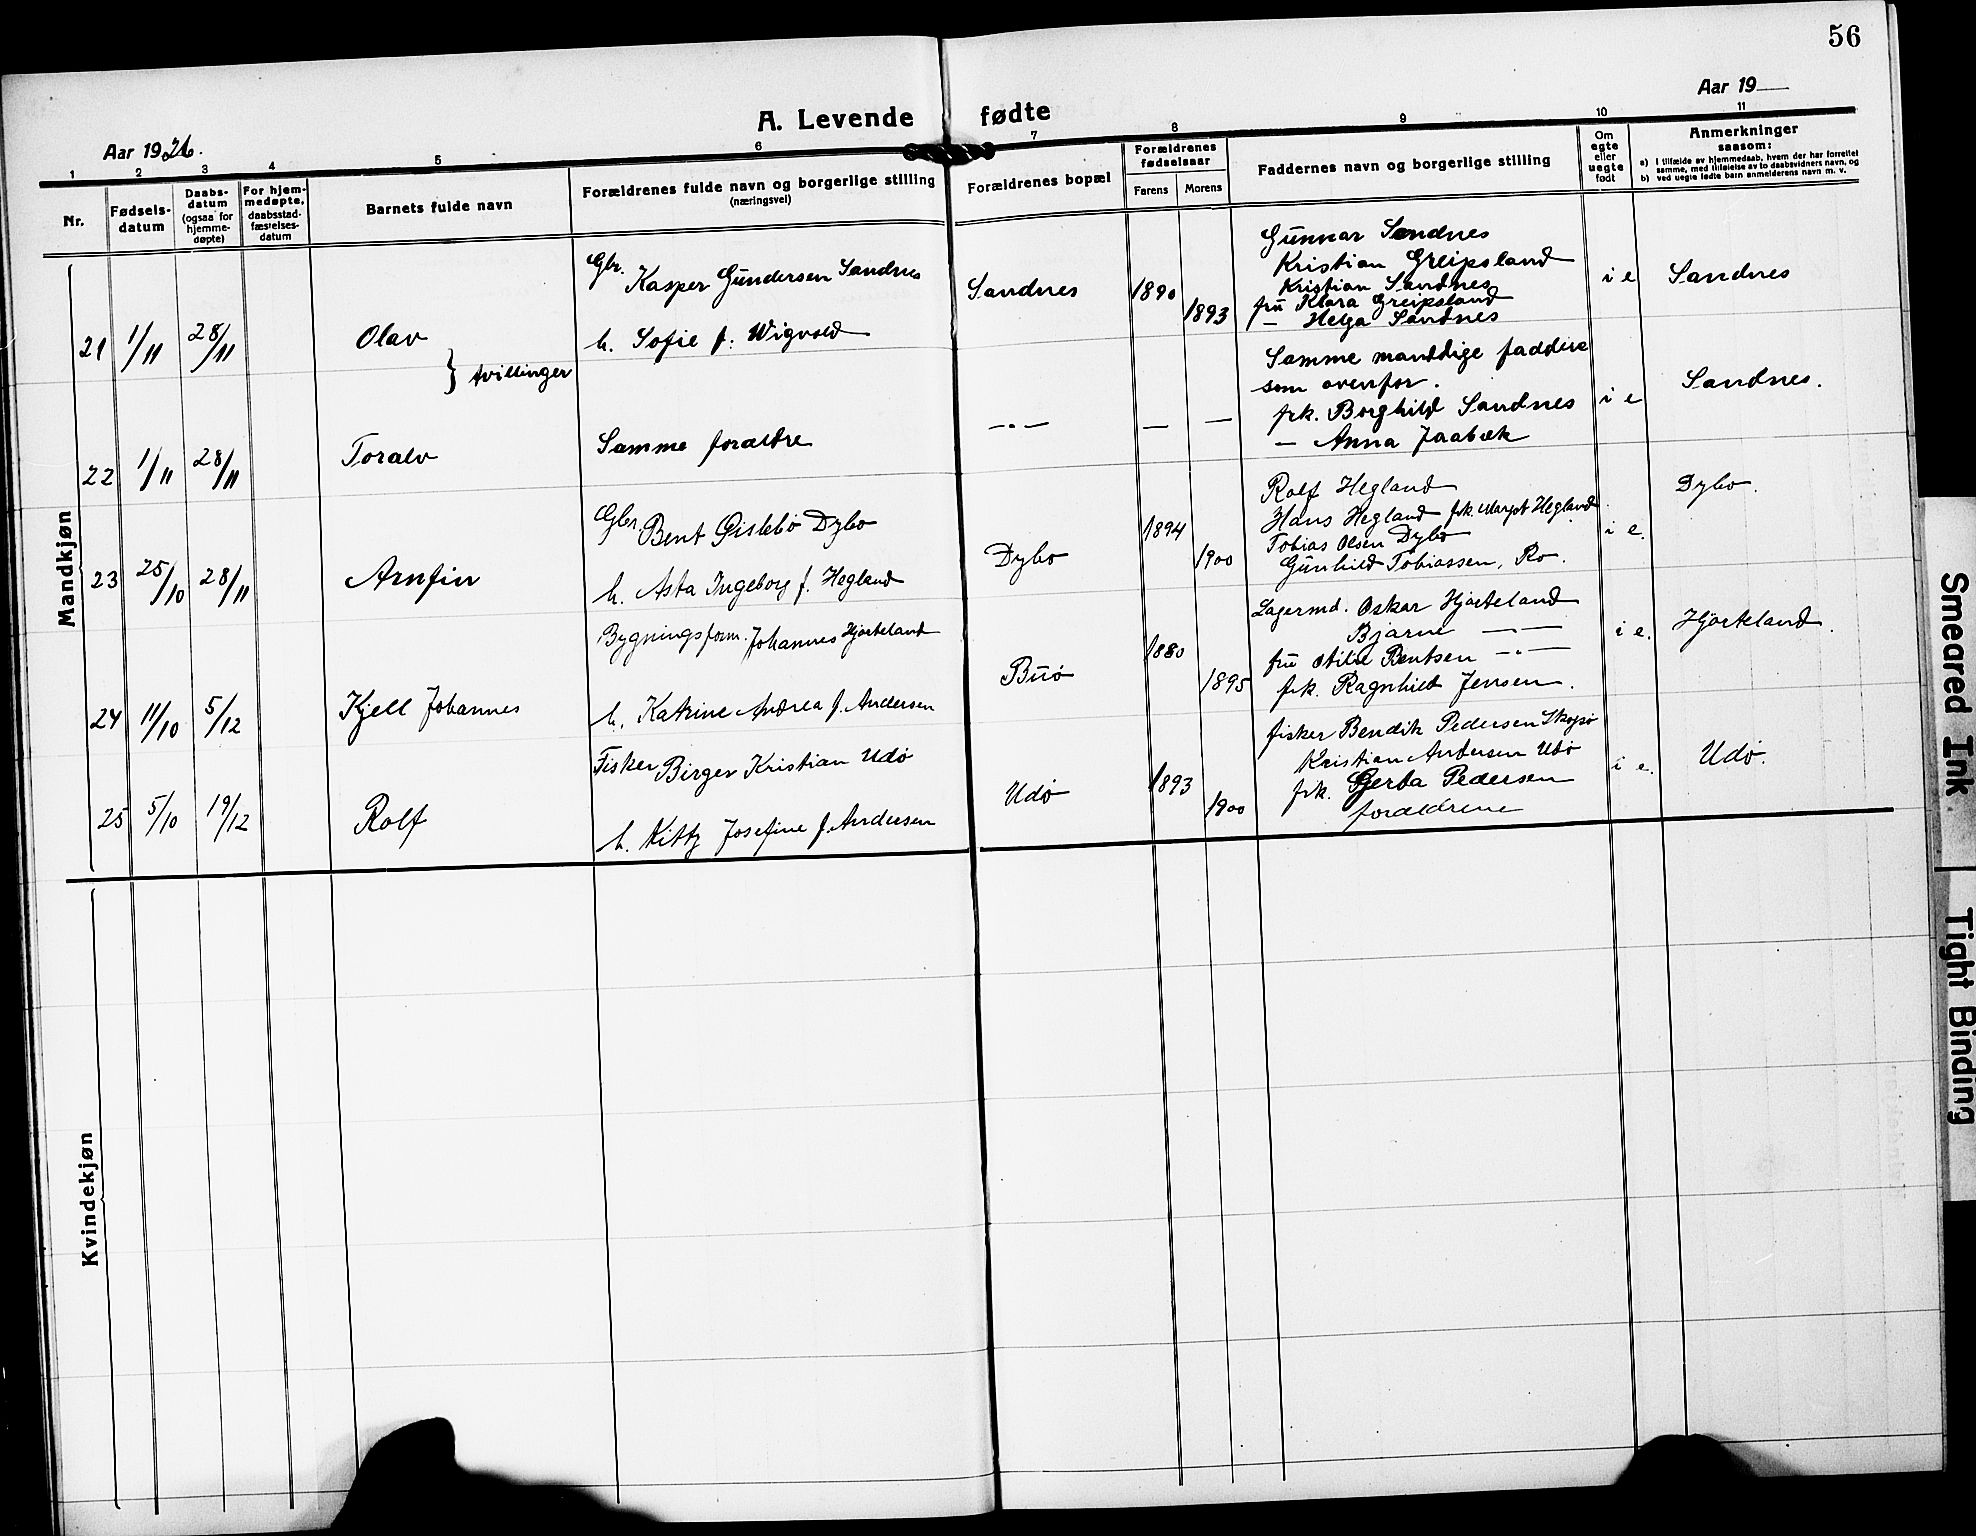 56
Aar 1926.
A. Levende fødte
Aar 19
1 2 3 4 5 6 7 8 9 10 11
Nr.
Fødsels-
datum
Daabs-
datum
(ogsaa for
hjemme-
døpte)
For hjem-
medøpte,
daabsstad-
fæstelses-
datum
Barnets fulde navn
Forældrenes fulde navn og borgerlige stilling
(næringsvei)
Forældrenes bopæl
Forældrenes
fødselsaar
Farens Morens
Faddernes navn og borgerlige stilling
Om
egte
eller
uegte
født
Anmerkninger
saasom:
a) I tilfælde av hjemmedaab, hvem der har forrettet
samme, med tilføielse av to daabsvidners navn, og
b) ved uegte fødte barn anmelderens navn m. v.
Mandkjøn
21 1/11 28/11 Olav
} tvillinger
Gbr. Kasper Gundersen Sandnes
h. Sofie f. Wigvold
Sandnes 1890 1893
Gunnar Sandnes
Kristian Greipsland
Kristian Sandnes
fru Klara Greipsland
— Helga Sandnes
i e Sandnes
22 1/11 28/11 Toralv
Samme forældre
—"— — —
Samme mandlige faddere
som ovenfor.
frk. Borghild Sandnes
— Anna Jaabæk
i e Sandnes.
23 25/10 28/11 Arnfin
Gbr. Bent Øislebø Dybo
h. Asta Ingeborg f. Hegland
Dybo 1894 1900
Rolf Hegland
Hans Hegland frk. Margot Hegland
Tobias Olsen Dybo
Gunhild Tobiassen, Ro.
i e. Dybo.
24 11/10 5/12 Kjell Johannes
Bygningsform. Johannes Hjorteland
h. Katrine Andrea f. Andersen
Buø 1880 1895
Lagermd. Oskar Hjorteland
Bjarne —"—
fru Bentsen —"—
frk. Ragnhild Jensen.
i e. Hjorteland.
25 5/10 19/12 Rolf
Fisker Birger Kristian Udø
h. Kitty Josefine f. Andersen
Udø 1893 1900
fisker Bendik Pedersen Skogsø
Kristian Andersen Udø
frk. Gerda Pedersen
forældrene
i e. Udø.
Kvindekjøn
Smeared Ink
Tight Binding